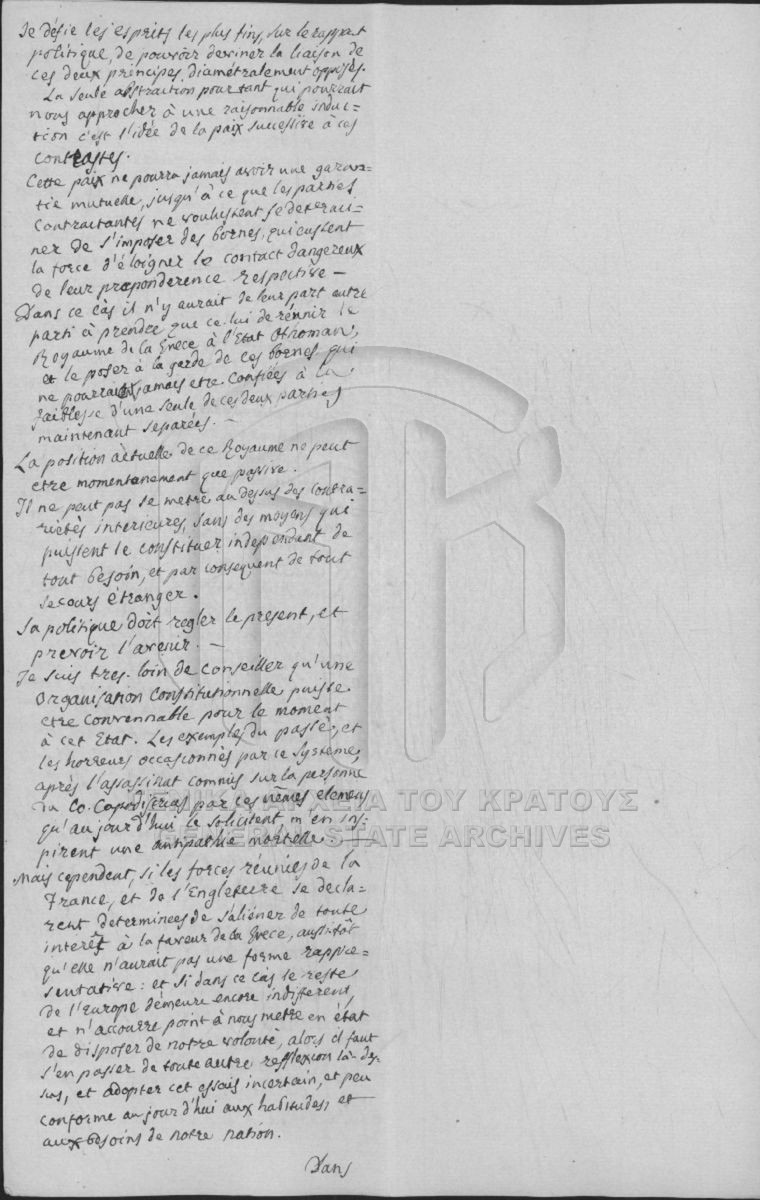 Je défie les esprits les plus fins, sur le rapport
politique, de pouvoir deviner la liaison de
ces deux principes diamétralement opposés.
La seule abstraction pourtant qui pourrait
nous approcher à une raisonnable induc=
tion c'est l'idée de la paix successive à ces
contrastes.
Cette paix ne pourra jamais avoir une garan=
tie mutuelle, jusqu'à ce que les parties
contractantes ne voulussent se determi=
ner de s'imposer des bornes, qui eussent
la force d'éloigner le contact dangereux
de leur preponderence respective —
Dans ce càs il n'y aurait de leur part autre
parti à prendre que ce-lui de réunir le
Royaume de la Grece à l'Etat Othoman,
et le poser à la garde de ces bornes, qui
ne pourrait jamais etre confiées à la
faiblesse d'une seule de ces deux parties
maintenant separées. —
La position actuelle de ce Royaume ne peut
etre momentanement que passive.
Il ne peut pas se metre au dessus des contra=
rietès interieures, sans des moyens qui
puissent le constituer independant de
tout besoin, et par consequent de tout
secours étranger.
Sa politique doit regler le present, et
prevoir l'avenir. —
Je suis tres-loin de conseiller qu'une
Organisation Constitutionnelle puisse
etre convennable pour le moment
à cet Etat. Les exemples du passè, et
les horreurs occasionnès par ce systeme,
après l'assassinat commis sur la personne
du Co. Capodistrias par ces mêmes elemens
qu'aujourd'hui le solicitent m'en ins=
pirent une antipathie mortelle.
Mais cependent, si les forces réunies de la
France, et de l'Engleterre se decla=
rent determinees de s'aliéner de toute
interêt à la faveur de la Grece, aussitôt
qu'elle n'aurait pas une forme rappre=
sentative: et si dans ce càs le reste
de l'Europe demeure encore indifferent,
et n'accourre point à nous metre en état
de disposer de notre volontè, alors il faut
s'en passer de toute autre reflexion là-des=
sus, et adopter cet essais incertain, et peu
conforme aujourd'hui aux habitudes, et
aux besoins de notre nation.
Dans
ΓΕΝΙΚΑ ΑΡΧΕΙΑ ΤΟΥ ΚΡΑΤΟΥΣ
GENERAL STATE ARCHIVES